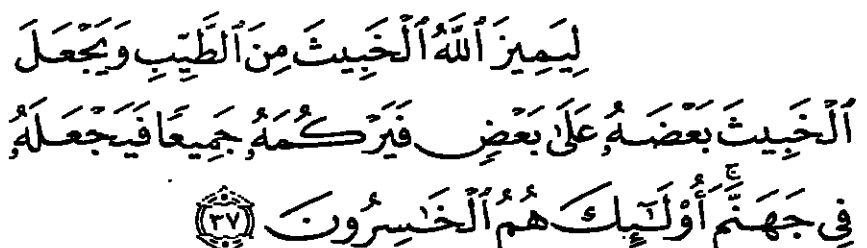 لِيَمِيزَ ٱللَّهُ ٱلْخَبِيثَ مِنَ ٱلطَّيِّبِ وَيَجْعَلَ
ٱلْخَبِيثَ بَعْضَهُۥ عَلَىٰ بَعْضٍ فَيَرْكُمَهُۥ جَمِيعًا فَيَجْعَلَهُۥ
فِى جَهَنَّمَ ۚ أُو۟لَـٰٓئِكَ هُمُ ٱلْخَـٰسِرُونَ ﴿٣٧﴾